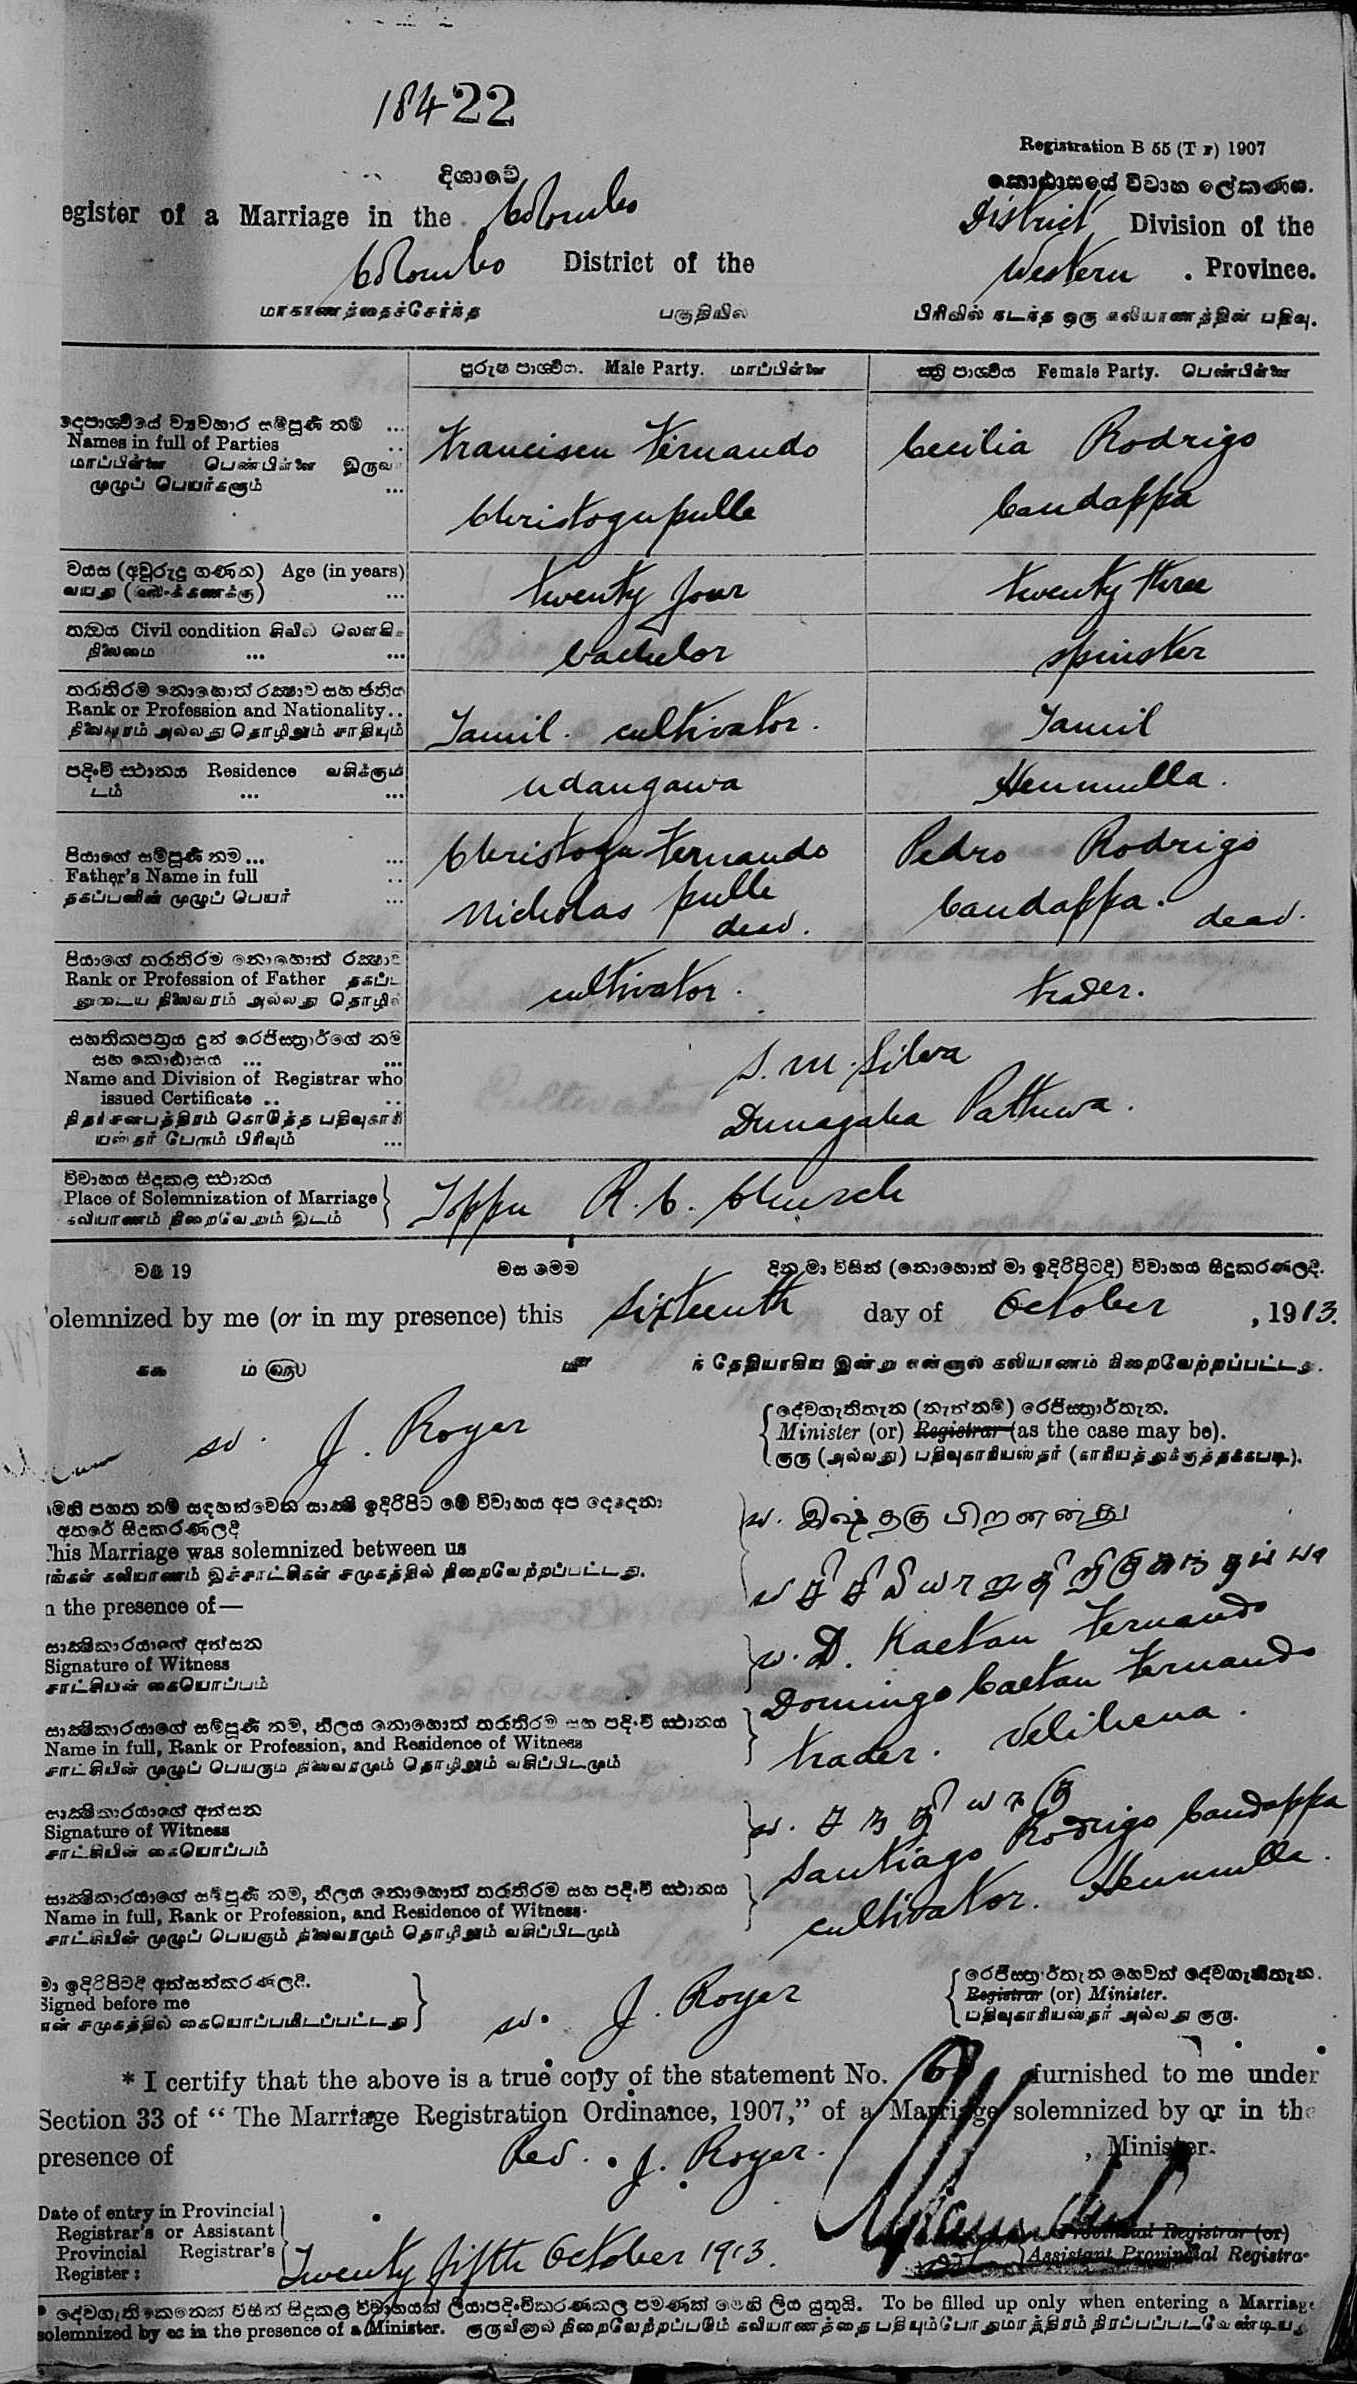 18422
Registration B 55 (T F) 1907
දිශාවේ
කොඨාසයේ විවාහ ලේකණය.
egister of a Marriage in the Colombo District Division of the
Colombo District of the Western Province.
மாகாணத்தைச்சேர்ந்த பகுதியில் பிரிவில் நடந்த ஒரு கலியாணத்தின் பதிவு.
පුරුෂ පාශ්වීය. Male Party. மாப்பிள்ளை
ස්ත්‍රි පාශ්වීය Female Party. பெண்பிள்ளை
දෙපාශ්වීයේ ව්‍යවහාර සම්පූණි නම් ...
Names in full of Parties ..
மாப்பிள்ளை பெண்பிள்ளை இருவ
முழுப் பெயர்களும் ...
Franciscu Fernando
Christogupulle
Cecilia Rodrigo
Candappa
වයස (අවුරුදු ගණන) Age (in years)
வயது ...
twenty four
twenty three
තත්‍වය Civil condition சிவில் லௌகிக
நிலைமை ... ...
bachelor
spinster
තරාතිරම නොහොත් රක්‍ෂාව සහ ජාතිය
Rank or Profession and Nationality..
நிலைவரம் அல்லது தொழிலும் சாதியும்
Tamil. cultivator.
Tamil
පදිංචි ස්ථානය Residence வசிக்கும்
டம் ... ...
Udangawa
Henmulla.
පියාගේ සම්පූණි නම ... ...
Father's Name in full ..
தகப்பனின் முழுப் பெயர் ...
Christogu Fernando
Nicholas pulle
dead.
Pedro Rodrigo
Candappa. dead.
පියාගේ තරාතිරම නොහොත් රක්‍ෂාව
Rank or Profession of Father தகப்ப
னுடைய நிலைவரம் அல்லது தொழில்
cultivator.
trader.
සහතිකපත්‍රය දුන් රෙජිස්ත්‍රාර්ගේ නම
සහ කොඨාසය ... ...
Name and Division of Registrar who
issued Certificate .. ..
நிதர்சனபத்திரம் கொடுத்த பதிவுகாரி
யஸ்தர் பேரும் பிரிவும் ...
S. M. Silva
Dunagaha Pattuwa.
විවාහය සිදුකළ ස්ථානය
Place of Solemnization of Marriage
கலியாணம் நிறைவேறும் இடம்
Toppu R. C. Church
වම් 19 මස මෙම දින මා විසින් (නොහොත් මා ඉදිරිපිටදී) විවාහය සිදුකරණලදී.
olemnized by me (or in my presence) this sixteenth day of October, 1913.
ம் ௵ ந் தேதியாகிய இன்று என்னால் கலியாணம் நிறைவேற்றப்பட்டது.
sd. J. Royer
දේවගැතිතැන (නැත්නම්) රෙජිස්ත්‍රාර්තැන.
Minister (or) Registrar (as the case may be).
குரு (அல்லது) பதிவுகாரியஸ்தர் (காரியத்துக்குத்தக்கபடி).
මෙහි පහත නම් සඳහන්වෙන සාක්‍ෂි ඉදිරිපිට මේ විවාහය අප දෙදෙනා
අතරේ සිදුකරණලදී
This Marriage was solemnized between us
எங்கள் கலியாணம் இச்சாட்சிகள் சமுகத்தில் நிறைவேற்றப்பட்டது.
n the presence of—
සාක්‍ෂිකාරයාගේ අත්සන
Signature of Witness
சாட்சியின் கையொப்பம்
sd. D. Kaetan Fernando
සාක්‍ෂිකාරයාගේ සම්පූණි නම, නිලය නොහොත් තරාතිරම සහ පදිංචි ස්ථානය
Name in full, Rank or Profession, and Residence of Witness
சாட்சியின் முழுப் பெயரும் நிலைவரமும் தொழிலும் வசிப்பிடமும்
Domingo Caetan Fernando
trader. Velihena.
සාක්‍ෂිකාරයාගේ අත්සන
Signature of Witness
சாட்சியின் கையொப்பம்
සාක්‍ෂිකාරයාගේ සම්පූණි නම, නිලය නොහොත් තරාතිරම සහ පදිංචි ස්ථානය
Name in full, Rank or Profession, and Residence of Witness.
சாட்சியின் முழுப் பெயரும் நிலைவரமும் தொழிலும் வசிப்பிடமும்
Santiago Rodrigo Candappa
cultivator. Henmulla.
මා ඉදිරිපිටදී අත්සන්කරණලදී.
Signed before me
என் சமுகத்தில் கையொப்பமிடப்பட்டது
sd. J. Royer
රෙජිස්ත්‍රාර්තැන හෙවත් දේවගැතිතැන.
Registrar (or) Minister.
பதிவுகாரியஸ்தர் அல்லது குரு.
* I certify that the above is a true copy of the statement No. furnished to me under
Section 33 of "The Marriage Registration Ordinance, 1907," of a Marriage solemnized by or in the
presence of Rev. J. Royer., Minister.
Date of entry in Provincial
Registrar's or Assistant
Provincial Registrar's
Register:
Twenty fifth October 1913.
Provincial Registrar (or)
Assistant Provincial Registra
* දේවගැතිකෙනෙක් විසින් සිදුකළ විවාහයක් ලියාපදිංචිකරණකල පමණක් මෙහි ලිය යුතුයි. To be filled up only when entering a Marriage
solemnized by or in the presence of a Minister. குருவினால் நிறைவேற்றப்படும் கலியாணத்தை பதியும்போதுமாத்திரம் நிரப்பப்படவேண்டியது